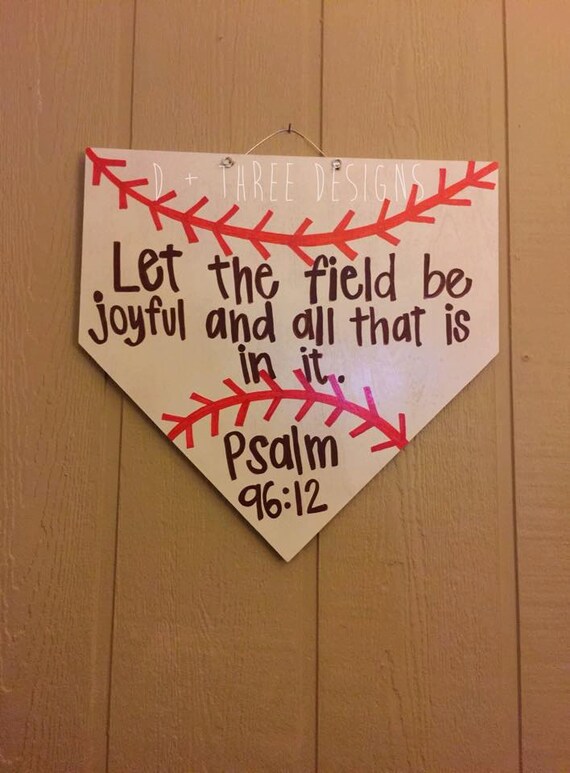 D + THREE DESIGNS
Let the field be
joyful and all that is
in it.
Psalm
96:12